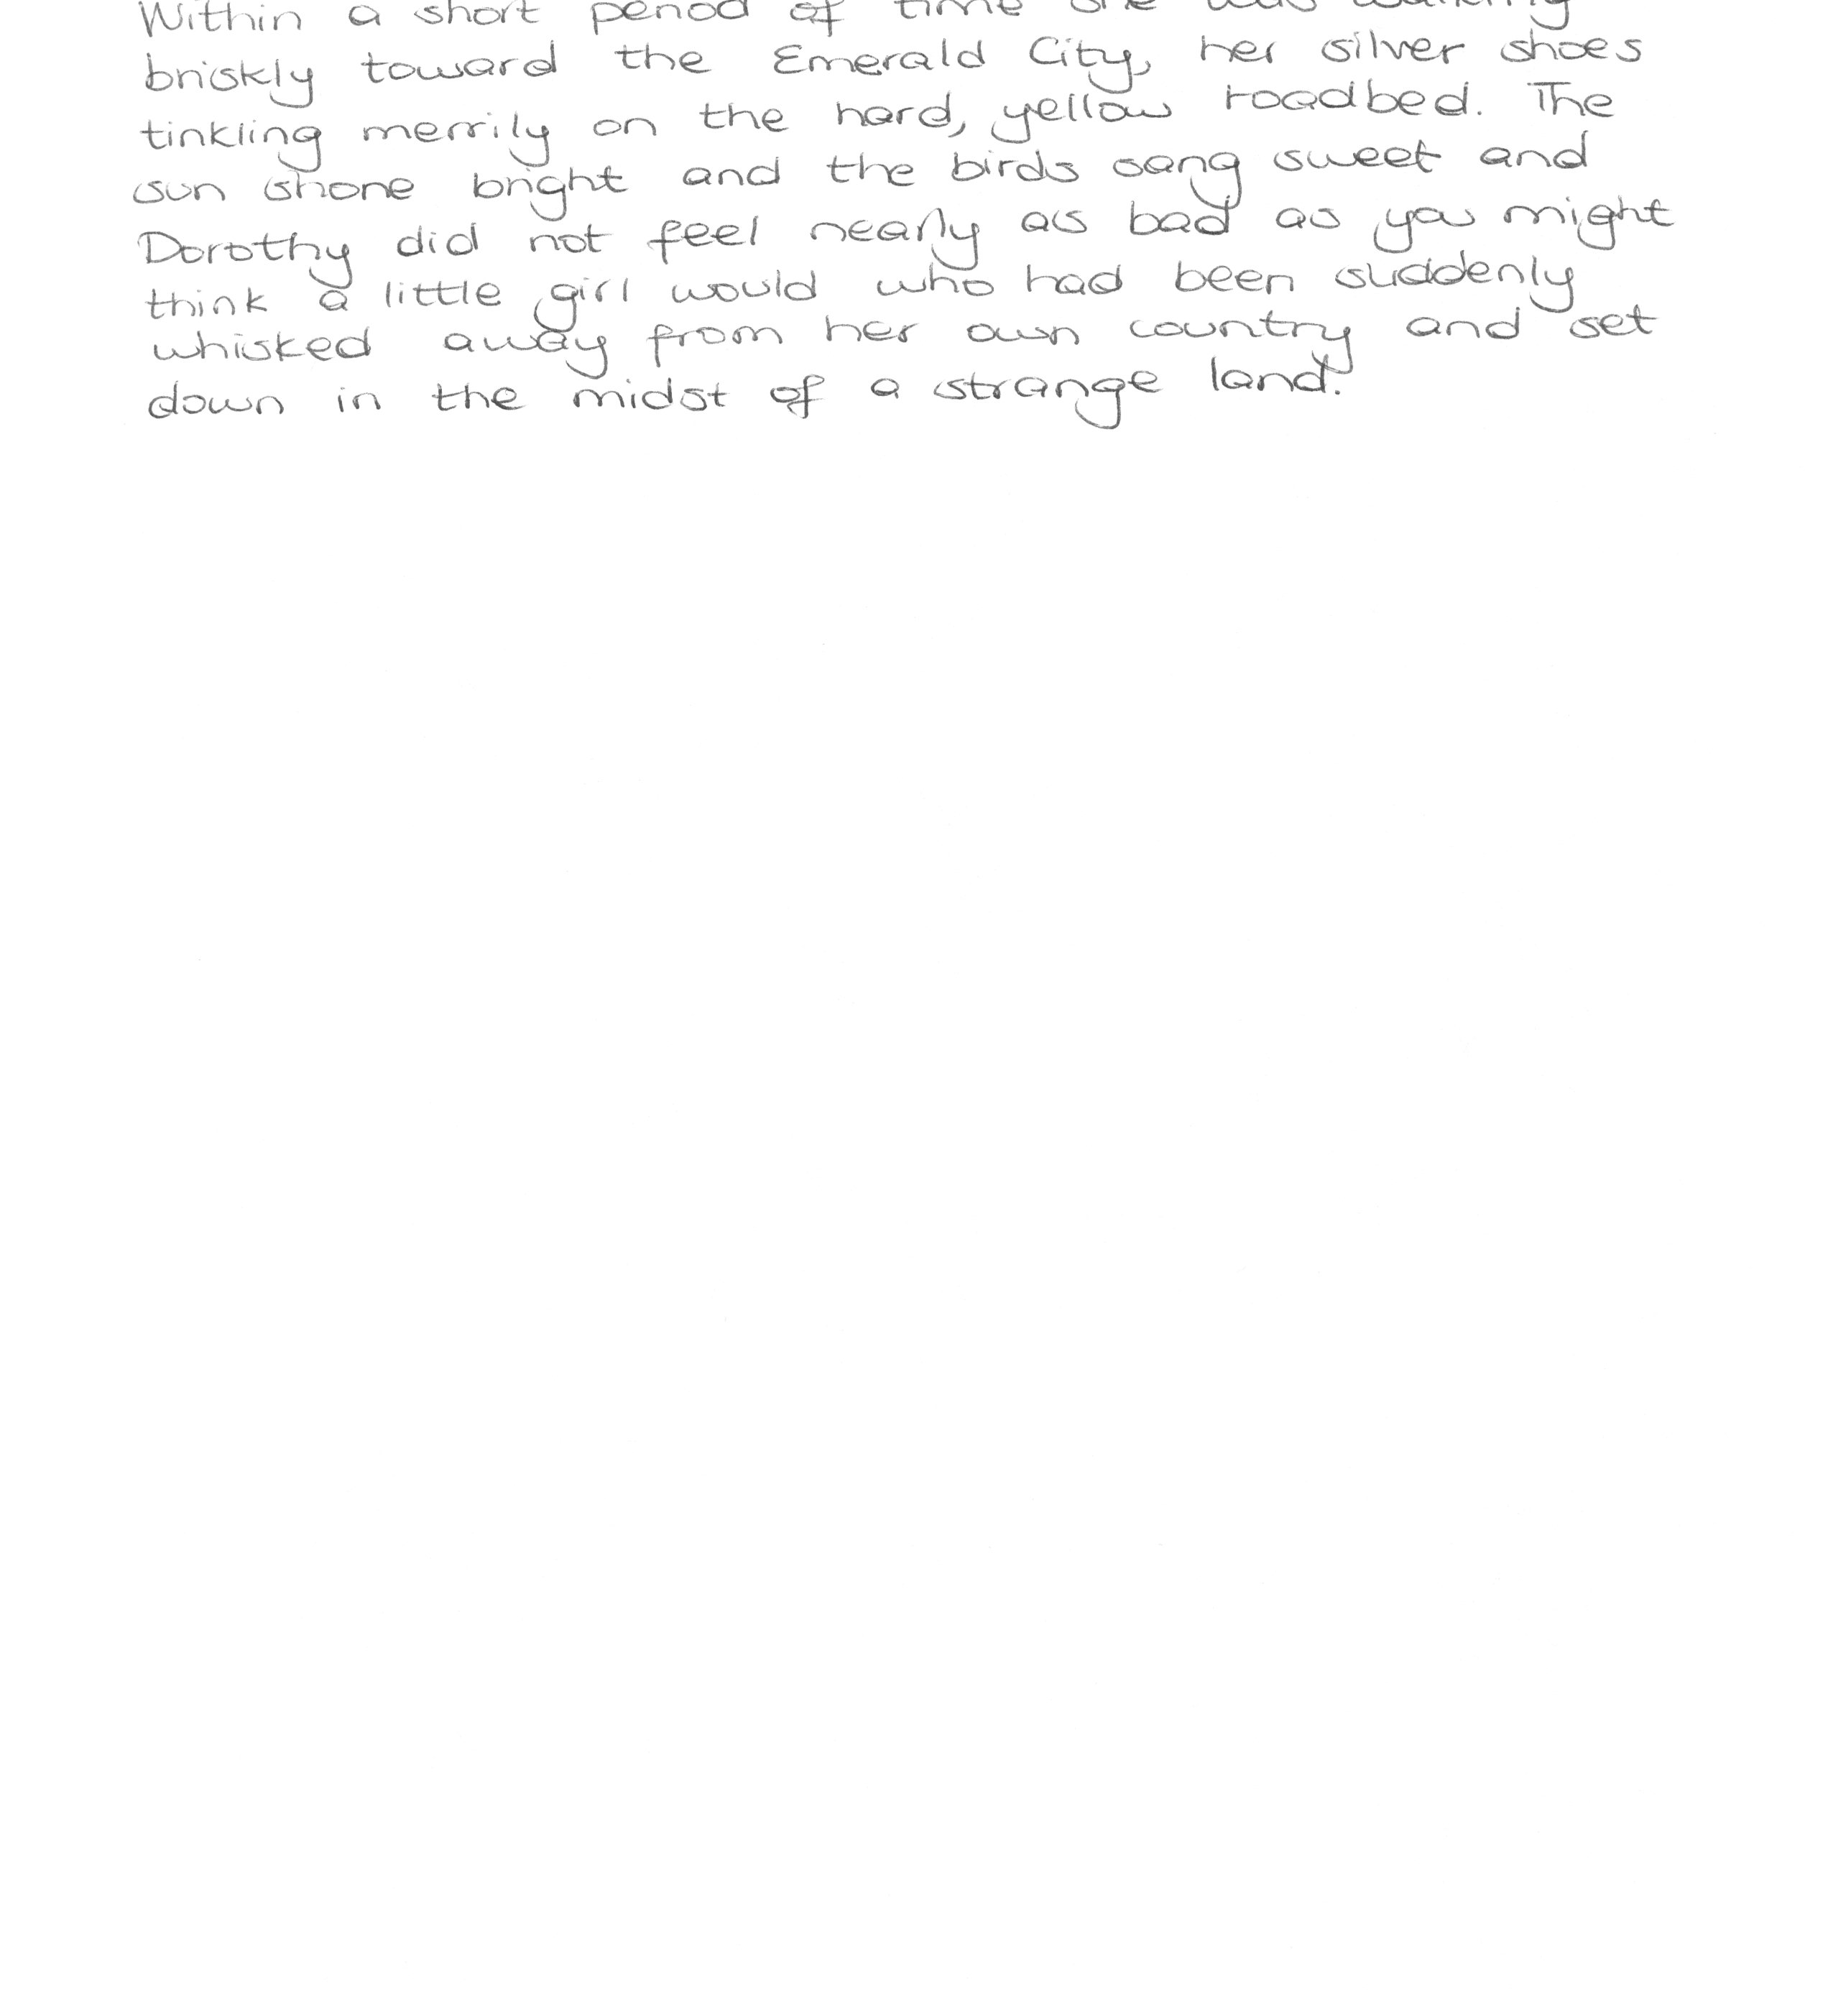 Within a short period of time she was walking
briskly toward the Emerald City, her silver shoes
tinkling merrily on the hard, yellow roadbed. The
sun shone bright and the birds sang sweet and
Dorothy did not feel nearly as bad as you might
think a little girl would who had been suddenly
whisked away from her own country and set
down in the midst of a strange land.